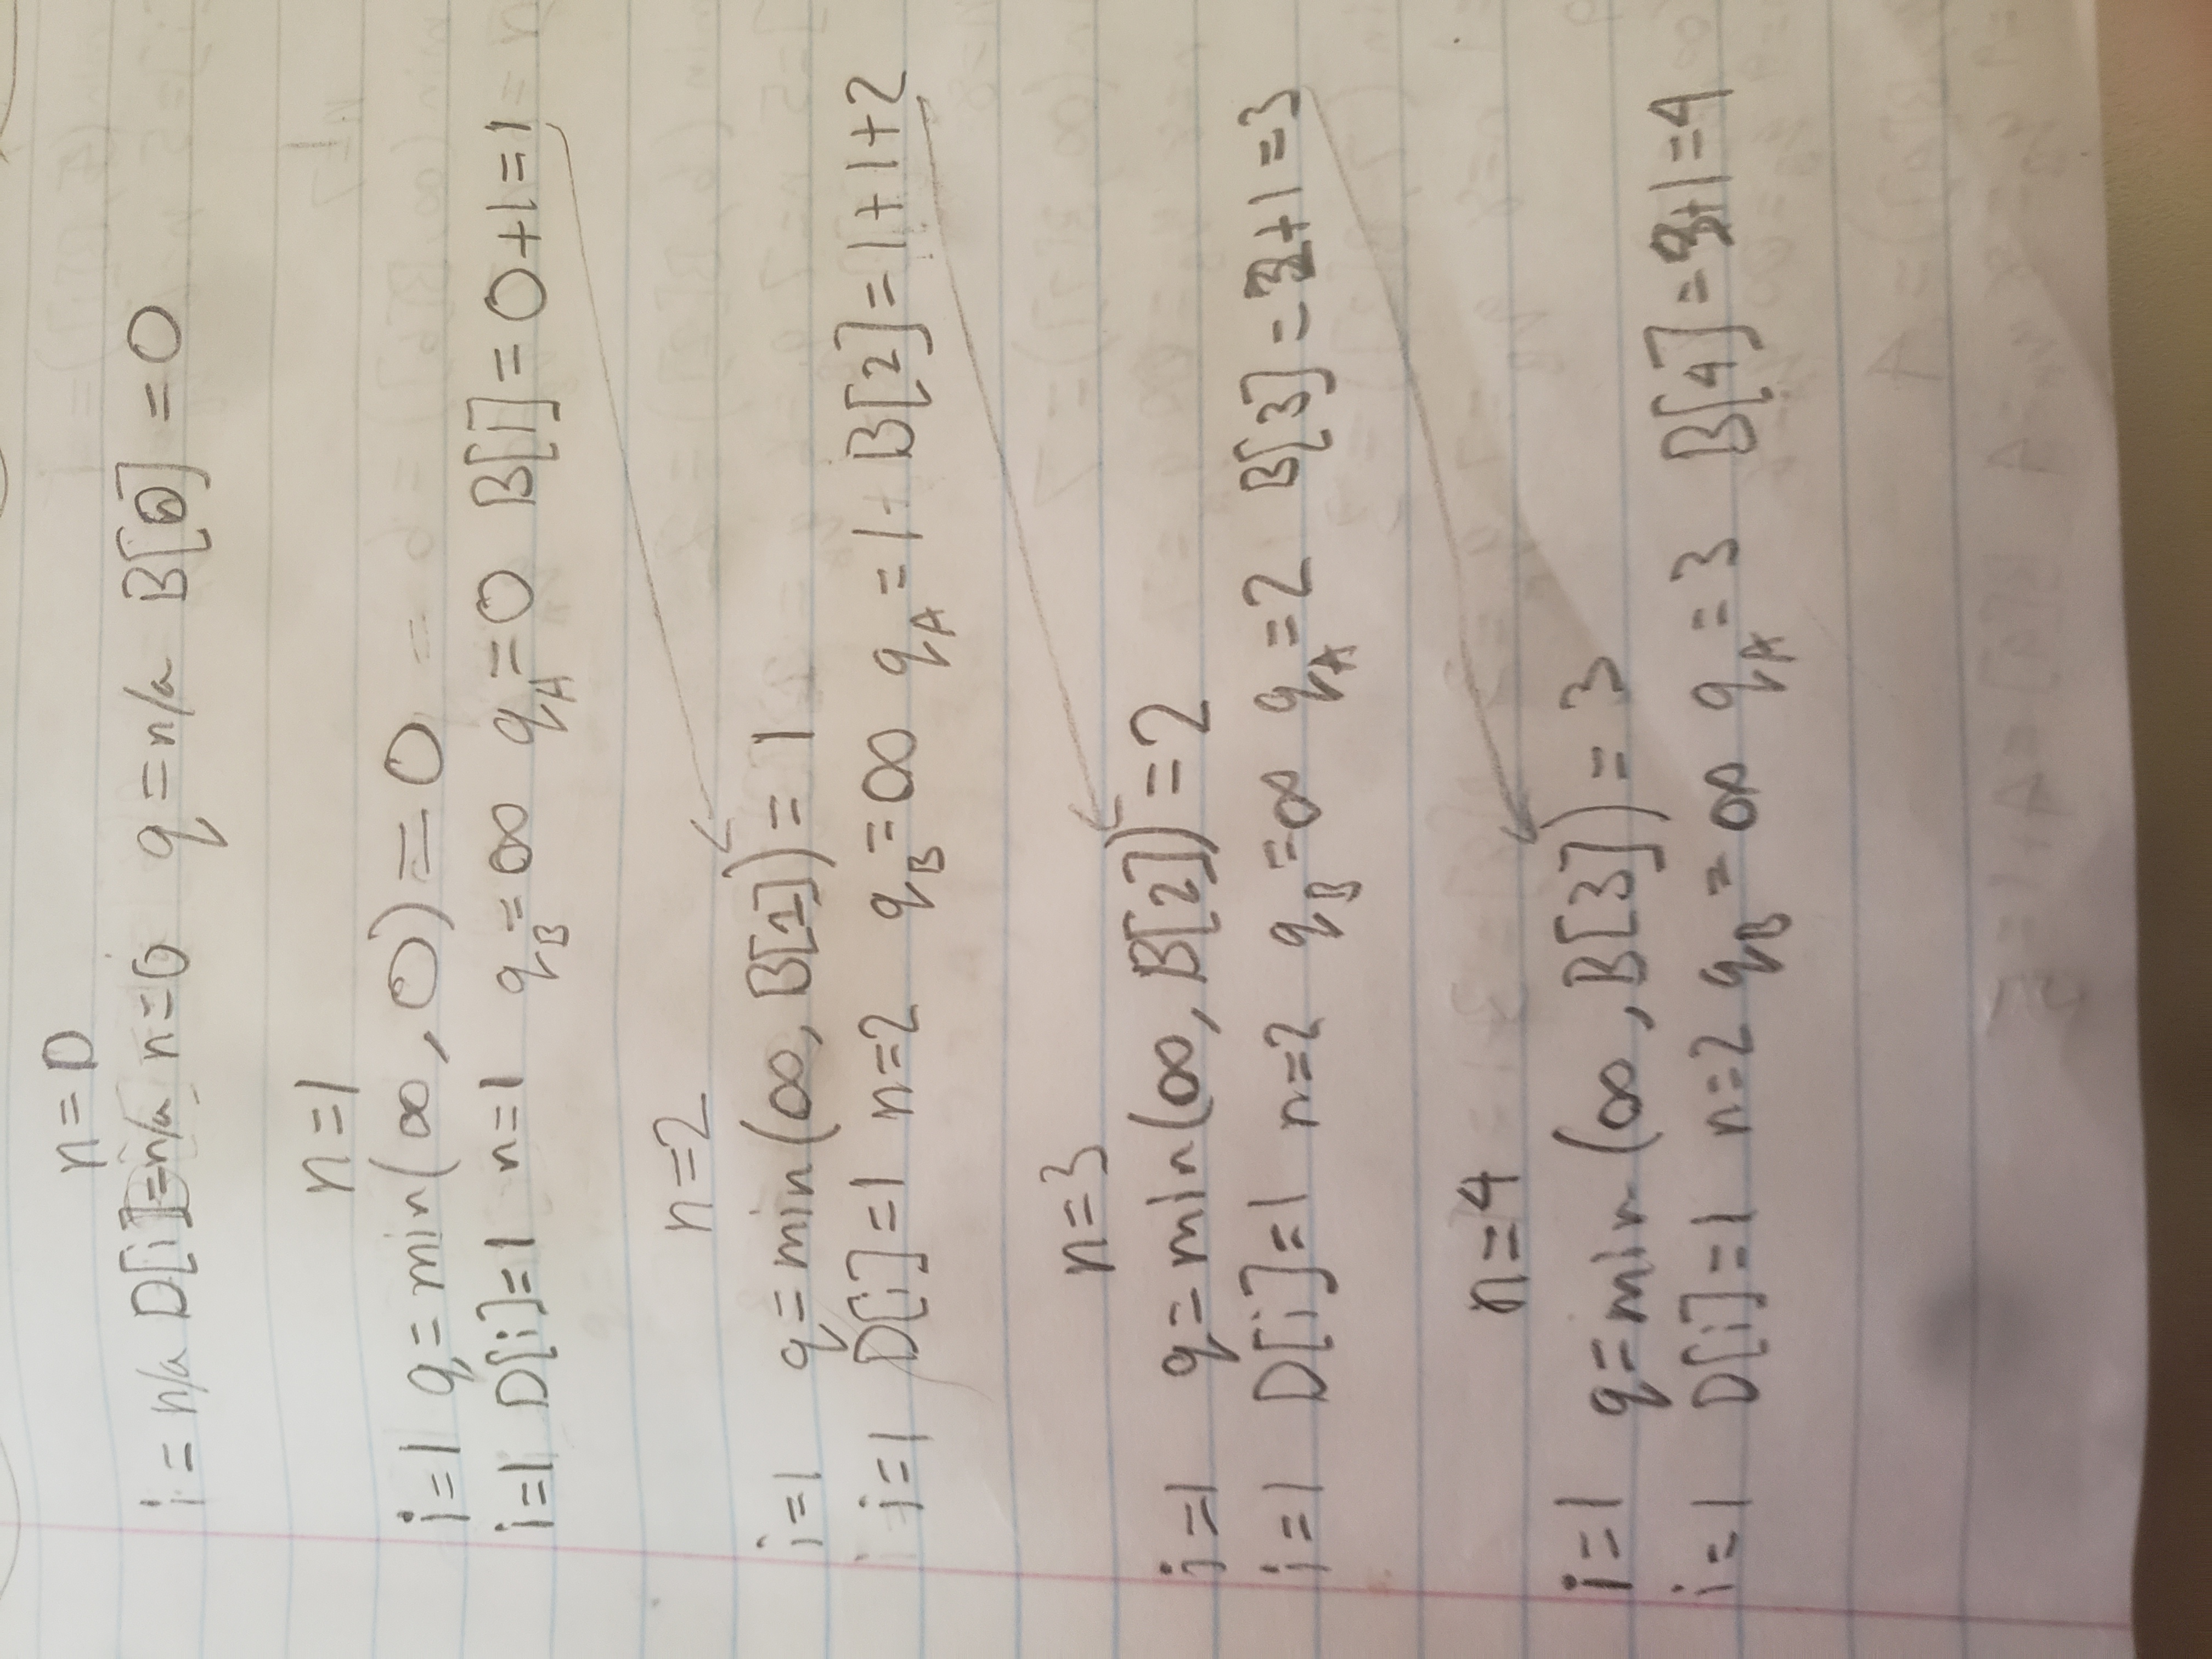 n=0
i=n/a D[i]=n/a n=0 q=n/a B[0]=0
n=1
i=1 q=min(∞,0)=0
i=1 D[i]=1 n=1 q_B=∞ q_A=0 B[1]=0+1=1
n=2
i=1 q=min(∞,B[1])=1
i=1 D[i]=1 n=2 q_B=∞ q_A=1 B[2]=1+1+2
n=3
i=1 q=min(∞,B[2])=2
i=1 D[i]=1 n=2 q_B=∞ q_A=2 B[3]=2+1=3
n=4
i=1 q=min(∞,B[3])=3
i=1 D[i]=1 n=2 q_B=∞ q_A=3 B[4]=3+1=4